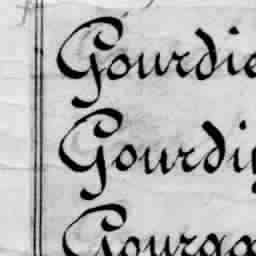 Gourdie
Gourdi
Gourga